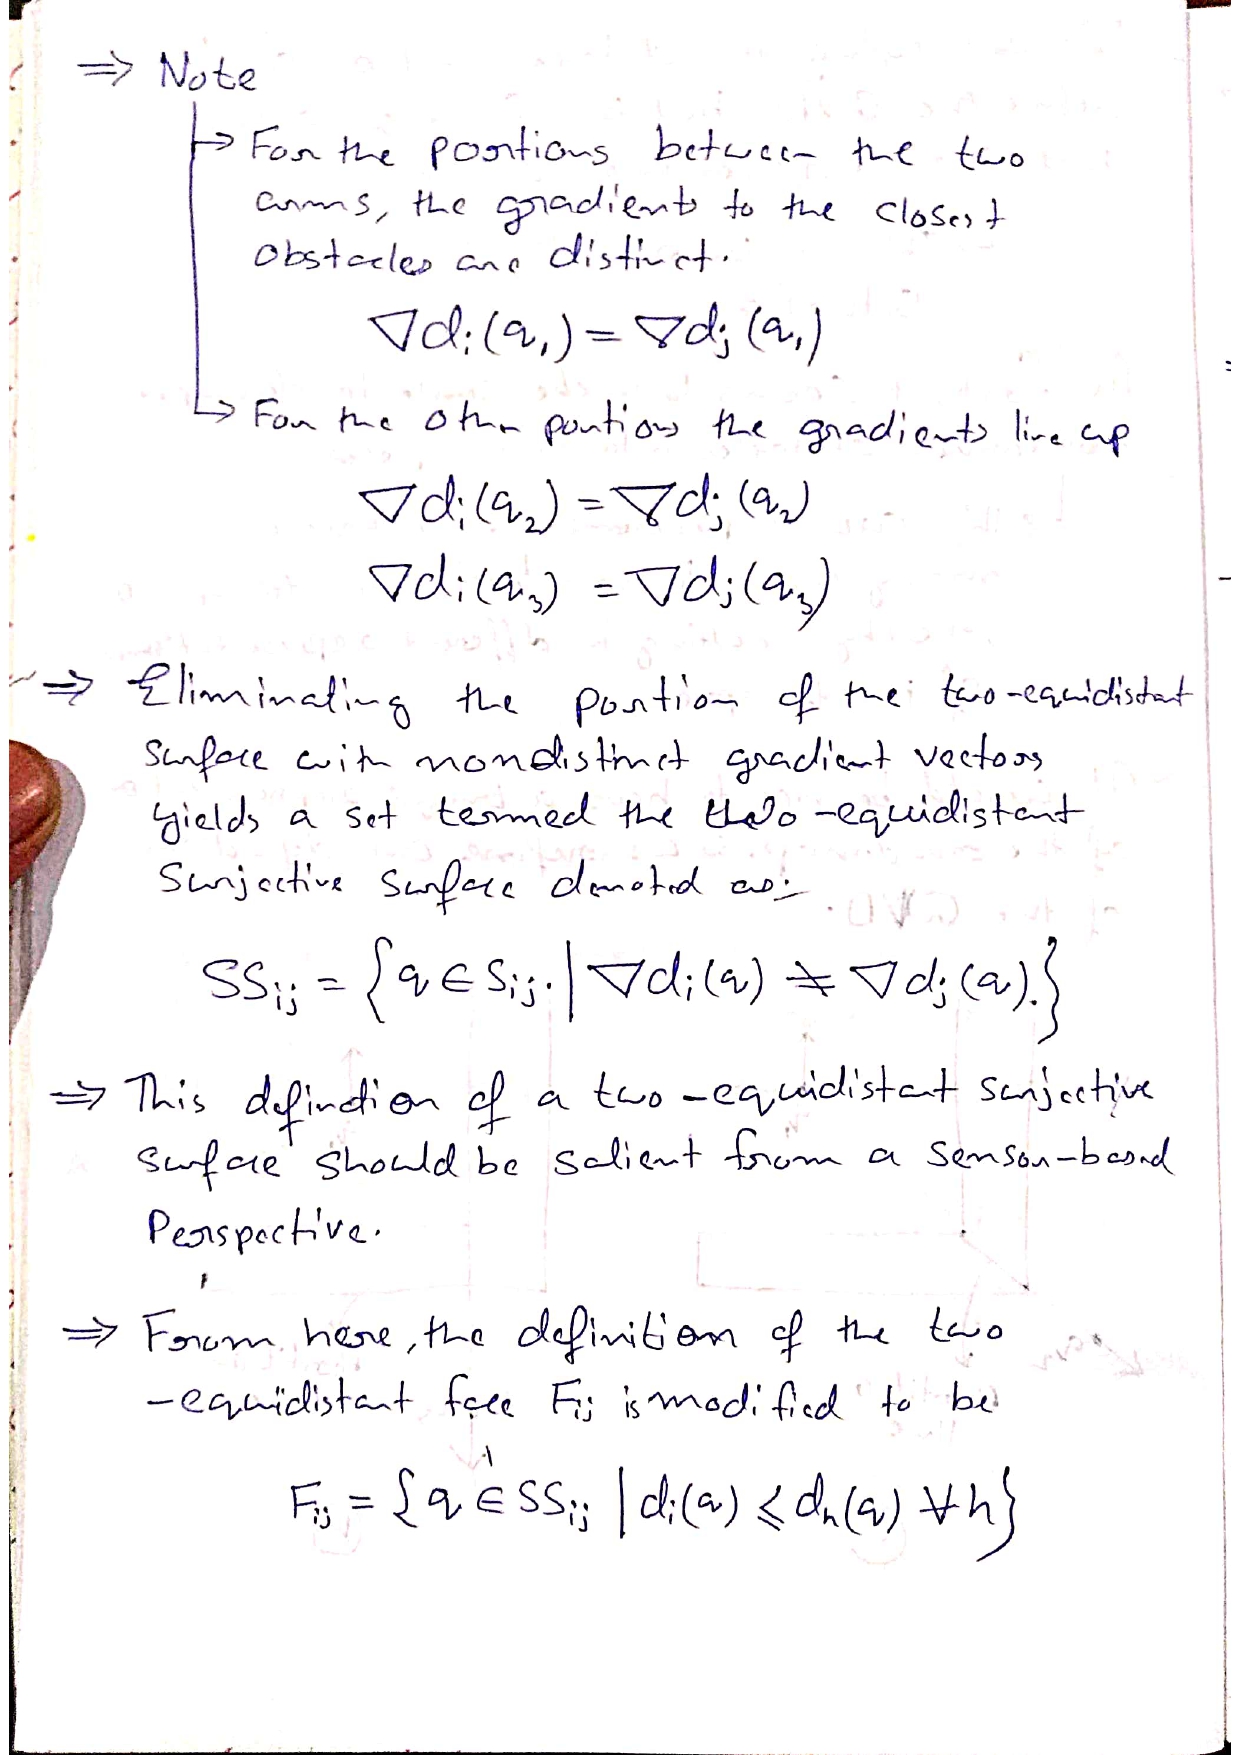 ⇒ Note
→ For the portions between the two
arms, the gradients to the closest
obstacles are distinct.
∇di(q₁) = ∇dj(q₁)
→ For the other portions the gradients line up
∇di(q₂) = ∇dj(q₂)
∇di(q₃) = ∇dj(q₃)
⇒ Eliminating the portion of the two-equidistant
surface with nondistinct gradient vectors
yields a set termed the two-equidistant
surjective surface denoted as:
SSij = {q ∈ Sij. | ∇di(q) ≠ ∇dj(q).}
⇒ This defination of a two-equidistant surjective
surface should be salient from a sensor-based
Perspective.
⇒ From here, the definition of the two
-equidistant face Fij is modified to be
Fij = {q ∈ SSij | di(q) ⩽ dh(q) ∀h}